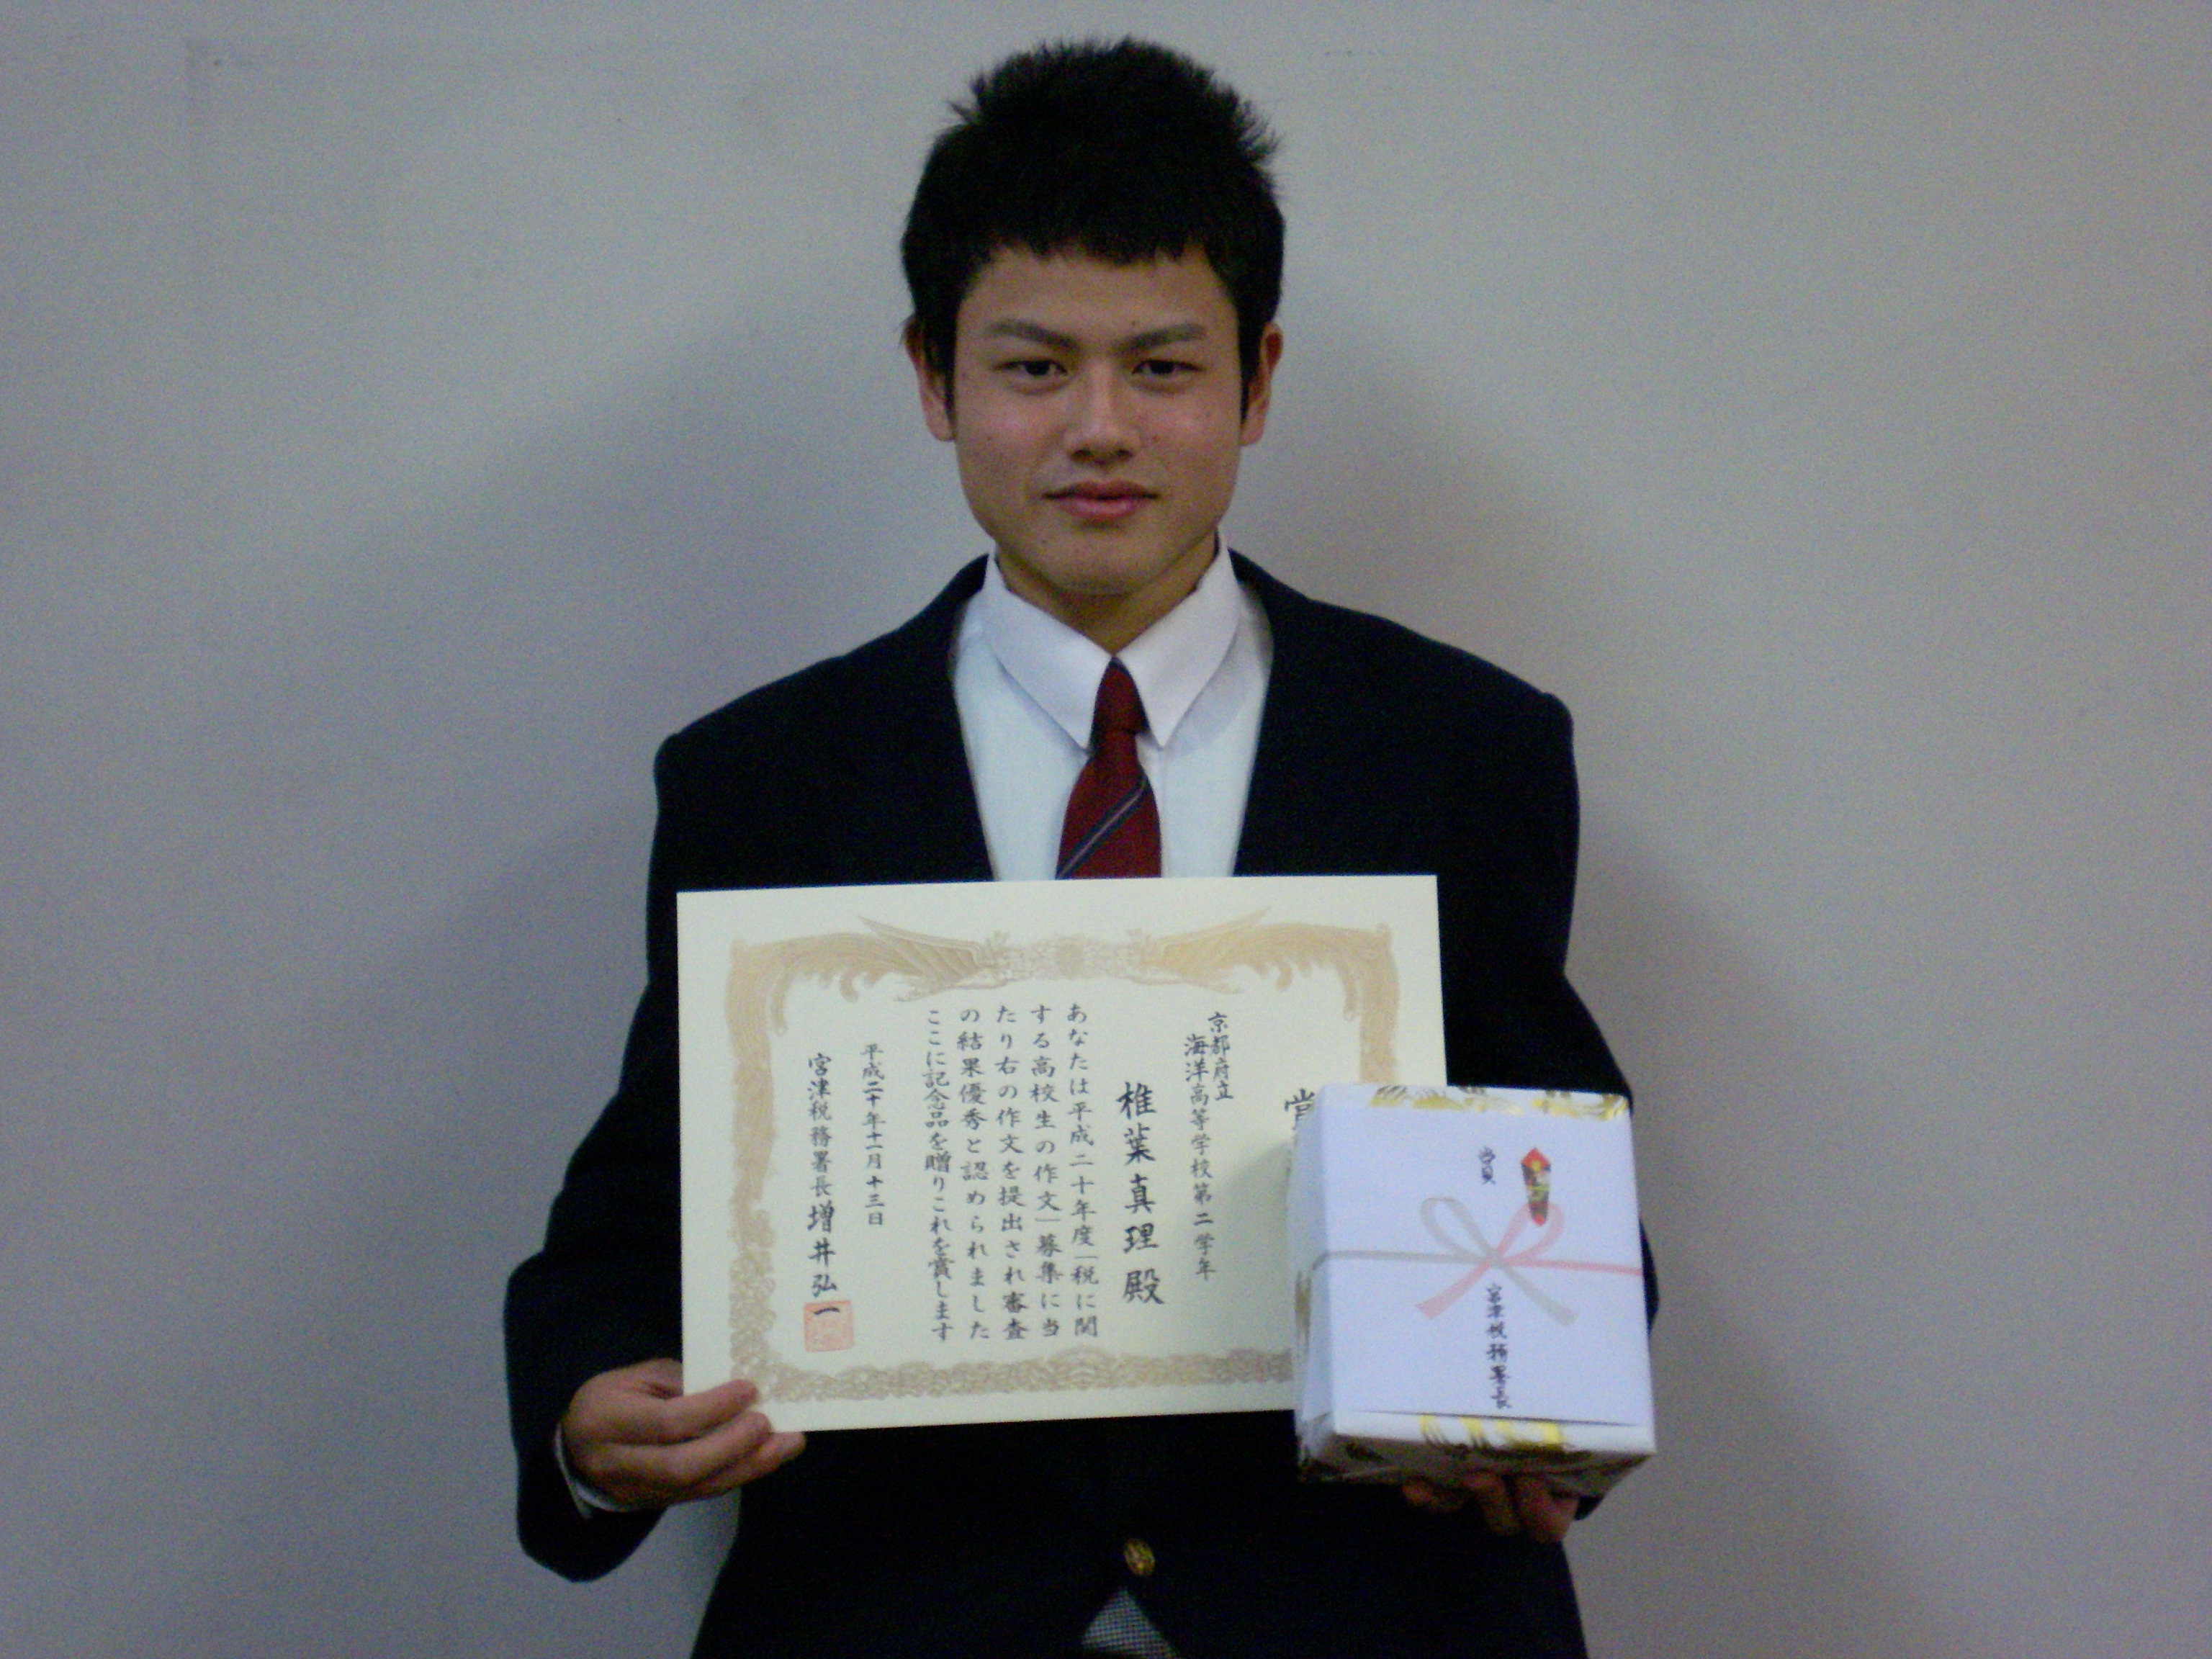 賞
京都府立
海洋高等学校第二学年
椎葉真理殿
あなたは平成二十年度「税に関
する高校生の作文」募集に当
たり右の作文を提出され審査
の結果優秀と認められました
ここに記念品を贈りこれを賞します
平成二十年十一月十三日
宮津税務署長増井弘一
賞
宮津税務署長